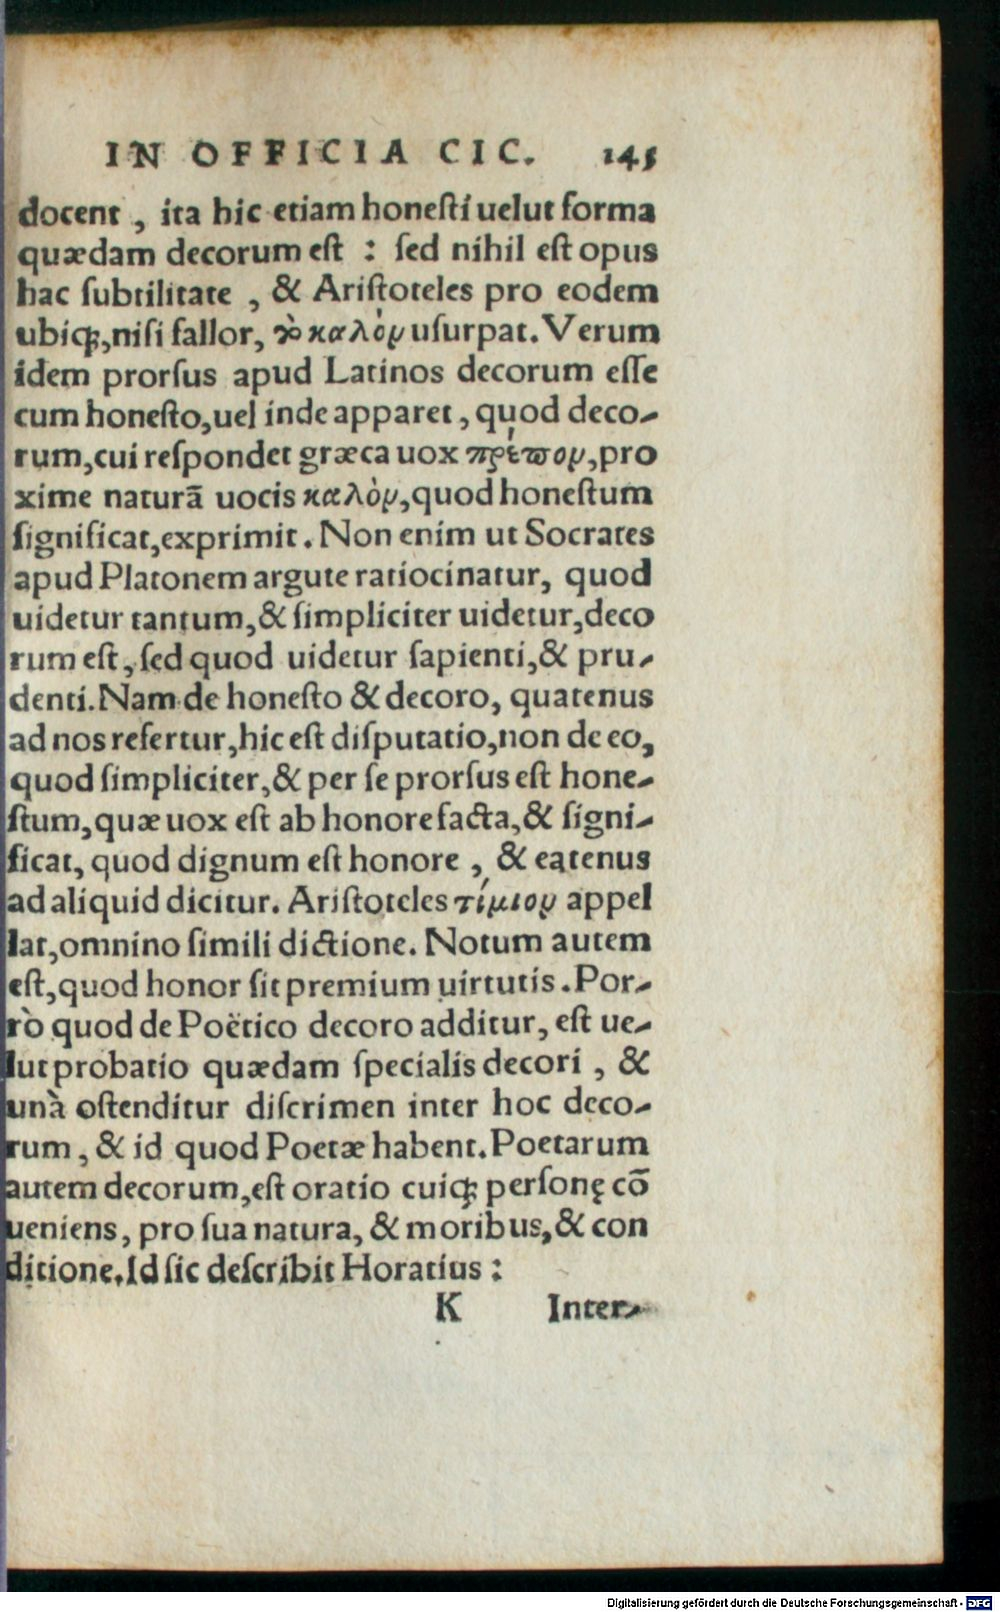 IN OFFICIA CIC. 145
docent, ita hic etiam honeſti uelut forma
quædam decorum eſt : ſed nihil eſt opus
hac ſubtilitate, & Ariſtoteles pro eodem
ubiqꝫ, niſi fallor, τὸ καλὸν uſurpat. Verum
idem prorſus apud Latinos decorum eſſe
cum honeſto, uel inde apparet, quod deco-
rum, cui reſpondet græca uox πρέπον, pro
xime naturā uocis καλὸν, quod honeſtum
ſignificat, exprimit. Non enim ut Socrates
apud Platonem argute ratiocinatur, quod
uidetur tantum, & ſimpliciter uidetur, deco
rum eſt, ſed quod uidetur ſapienti, & pru-
denti. Nam de honeſto & decoro, quatenus
ad nos refertur, hic eſt diſputatio, non de eo,
quod ſimpliciter, & per ſe prorſus eſt hone-
ſtum, quæ uox eſt ab honore facta, & ſigni-
ficat, quod dignum eſt honore, & eatenus
ad aliquid dicitur. Ariſtoteles τίμιον appel
lat, omnino ſimili dictione. Notum autem
eſt, quod honor ſit premium uirtutis. Por-
rò quod de Poëtico decoro additur, eſt ue-
lut probatio quædam ſpecialis decori, &
unà oſtenditur diſcrimen inter hoc deco-
rum, & id quod Poetæ habent. Poetarum
autem decorum, eſt oratio cuiqꝫ perſonę cō
ueniens, pro ſua natura, & moribus, & con
ditione. Id ſic deſcribit Horatius :
K Inter-
Digitalisierung gefördert durch die Deutsche Forschungsgemeinschaft - DFG